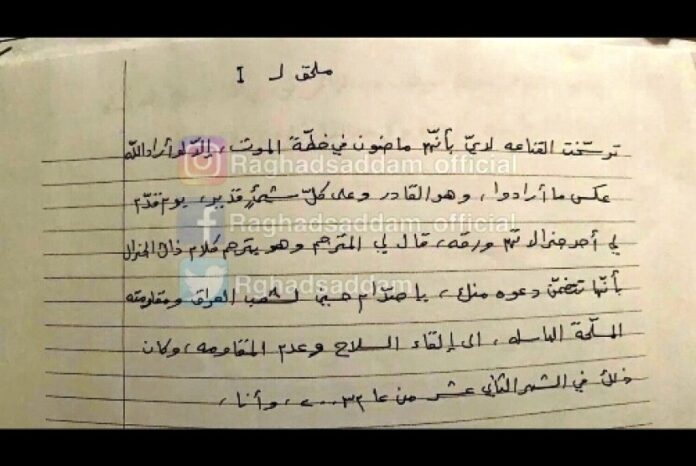 ملحق لـ I
ترسّخت القناعه لديّ بأنّهم ماضون في خطّة الموت، إلّا لو أراد الله
عكس ما أرادوا، وهو القادر وعلى كلّ شيءٍ قدير، يوم قدّم
لي أحد جنرالاتهم ورقه، قال لي المترجم وهو يترجم كلام ذلك الجنرال
بأنّها تتضمّن دعوه منك، يا صدّام حسين لشعب العراق ومقاومته
المسلّحة الباسله، الى إلقاء السلاح وعدم المقاومه، وكان
ذلك في الشهر الثاني عشر من عام ٢٠٠٣، وأنا،
Raghadsaddam_official
Raghadsaddam_official
Rghadsaddam